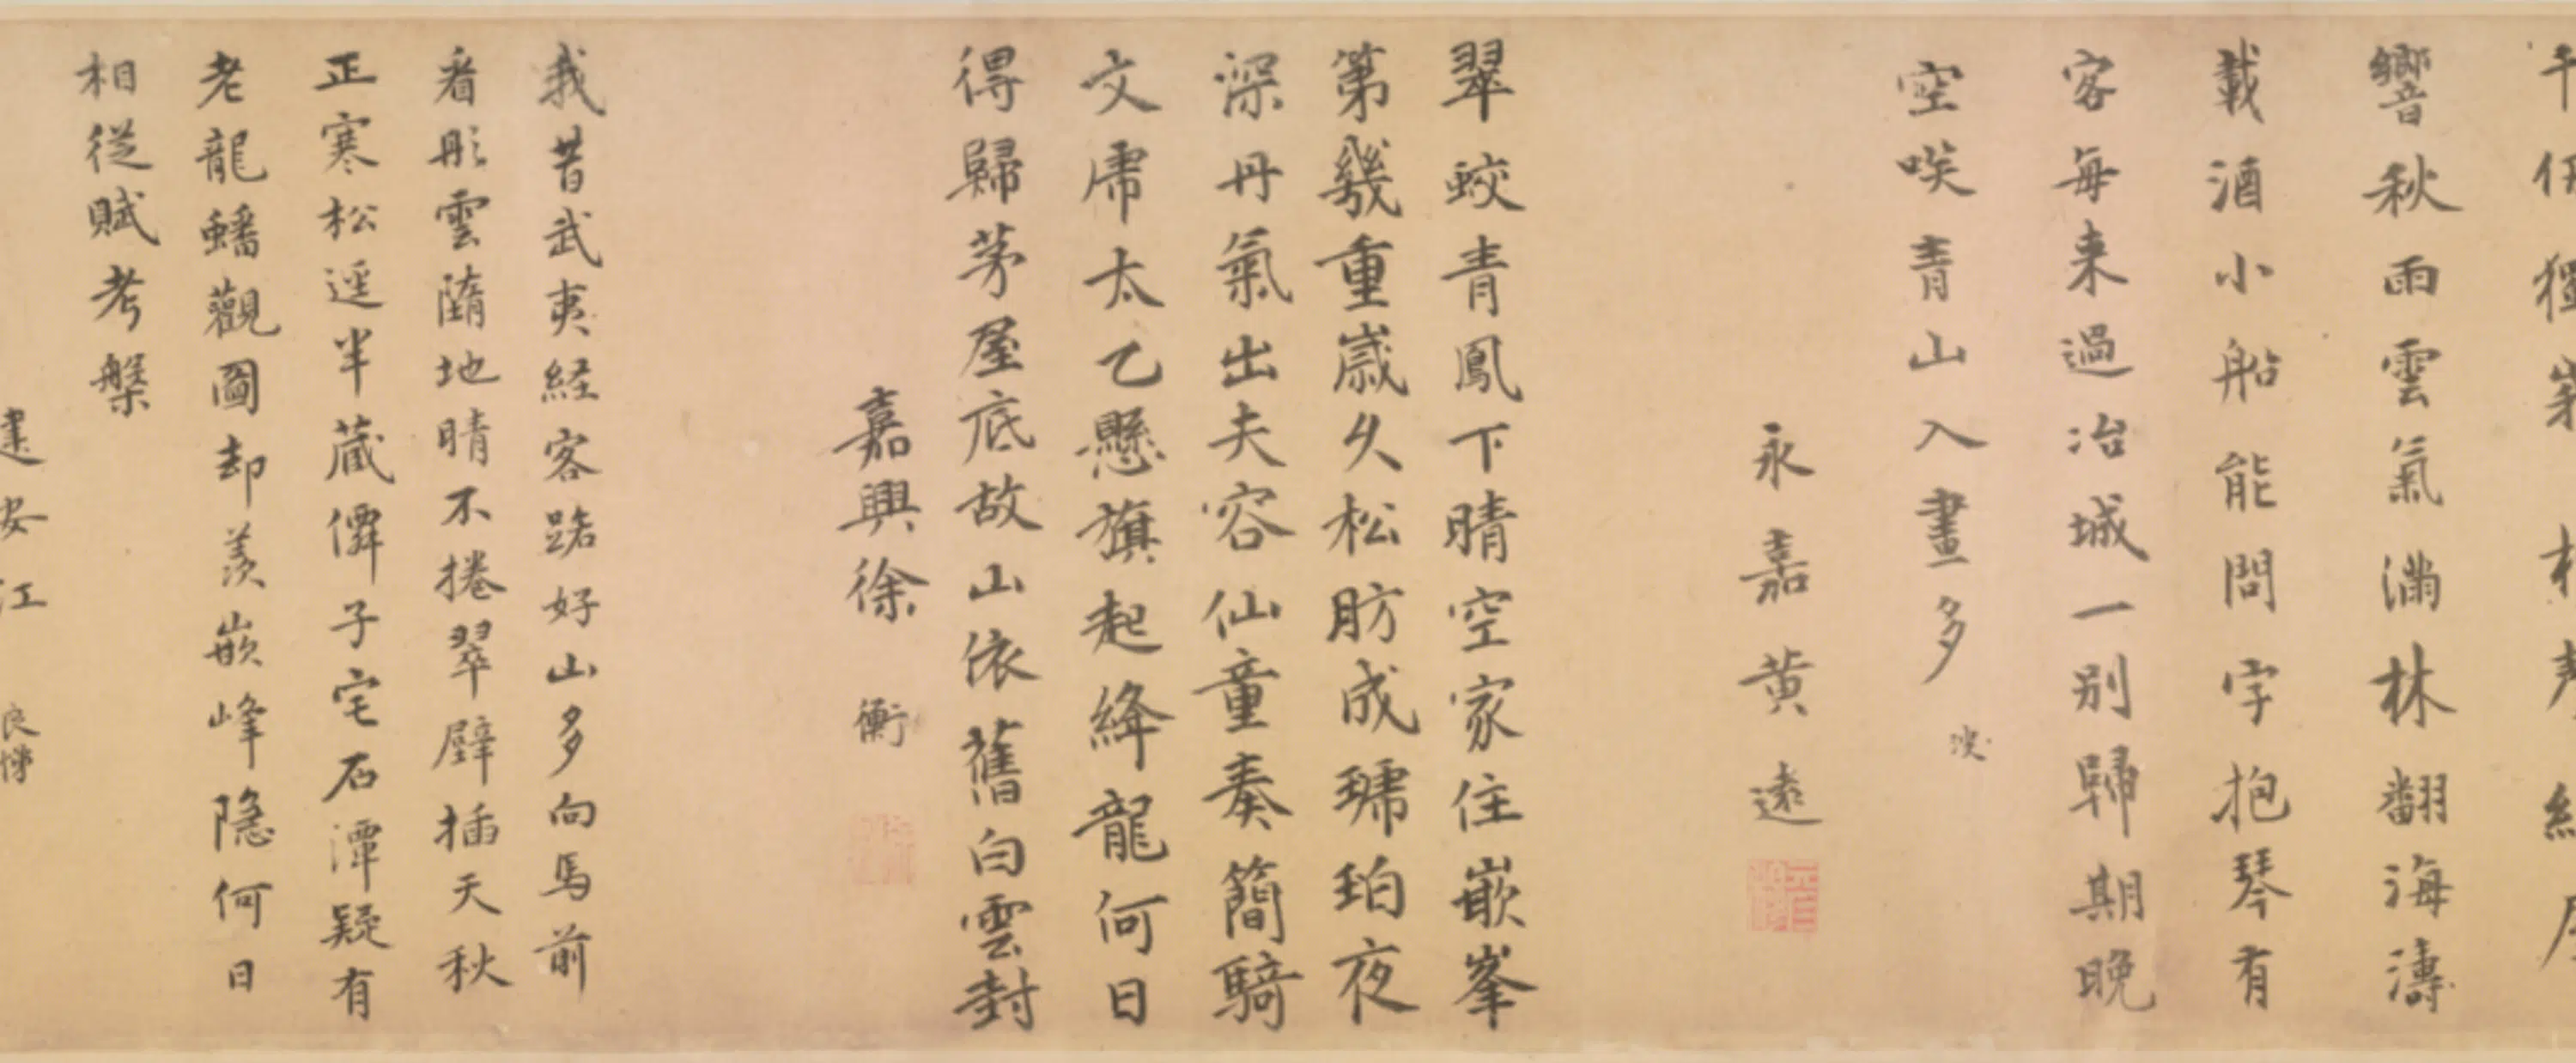 響秋雨雲氣滿林翻海濤
載酒小船能問字抱琴有
客每来過冶城一別歸期晚
空咲青山入畫多
永嘉黄遠
翠蛟青鳳下晴空家住嵌峯
第幾重歲久松肪成琥珀夜
深丹氣出夫容仙童奏簡騎
文虎太乙懸旗起絳龍何日
得歸茅屋底故山依舊白雲封
嘉興徐衡
我昔武夷経客路好山多向馬前
看彤雲墮地晴不捲翠壁插天秋
正寒松逕半蔵僊子宅石潭疑有
老龍蟠觀圖却羡嵌峰隐何日
相從賦考槃
建安江